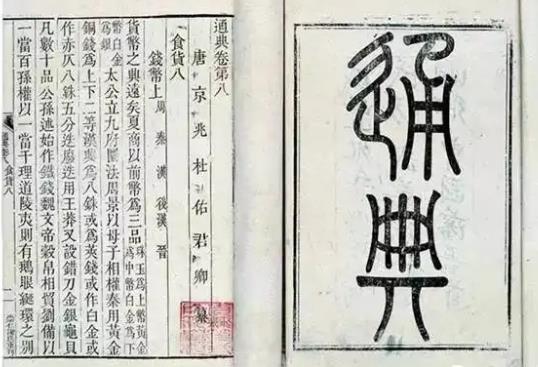 通典
通典卷第八
唐京兆杜佑君卿纂
食貨八
錢幣上 周 秦 漢 後漢 晉
貨幣之典遠矣夏商以前幣爲三品珠玉爲上幣黃金爲中幣白金爲下
幣白金爲銀太公立九府圜法周景以母子相權秦用黃金
銅錢爲上下二等漢興爲八銖或爲莢錢或作白金或
作赤仄八銖五分迭廢迭用王莽又設錯刀金銀龜貝
凡數十品公孫述始作鐵錢魏文帝穀帛相貿劉備以
一當百孫權以一當千理道陵夷則有鵝眼綖環之別
通典卷八食貨八
一